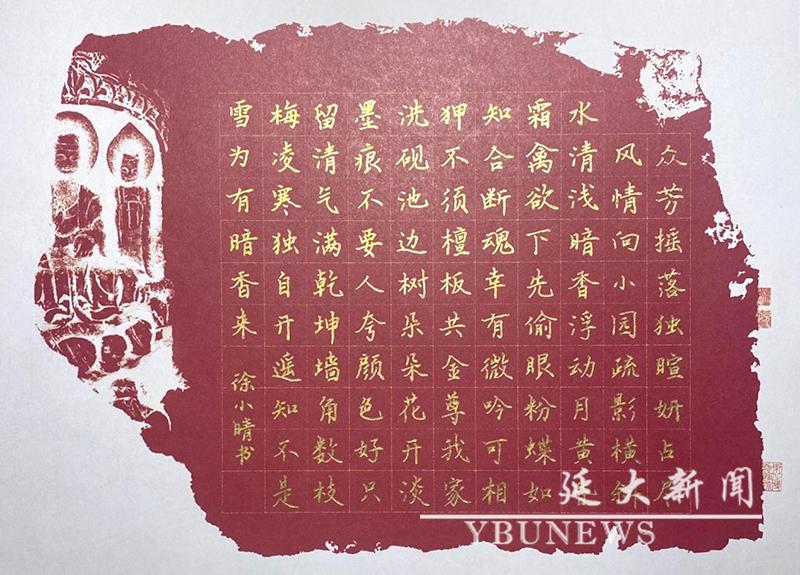 众芳摇落独暄妍占尽
风情向小园疏影横斜
水清浅暗香浮动月黄昏
霜禽欲下先偷眼粉蝶如
知合断魂幸有微吟可相
狎不须檀板共金尊我家
洗砚池边树朵朵花开淡
墨痕不要人夸颜色好只
留清气满乾坤墙角数枝
梅凌寒独自开遥知不是
雪为有暗香来
徐小晴书
延大新闻
YBUNEWS